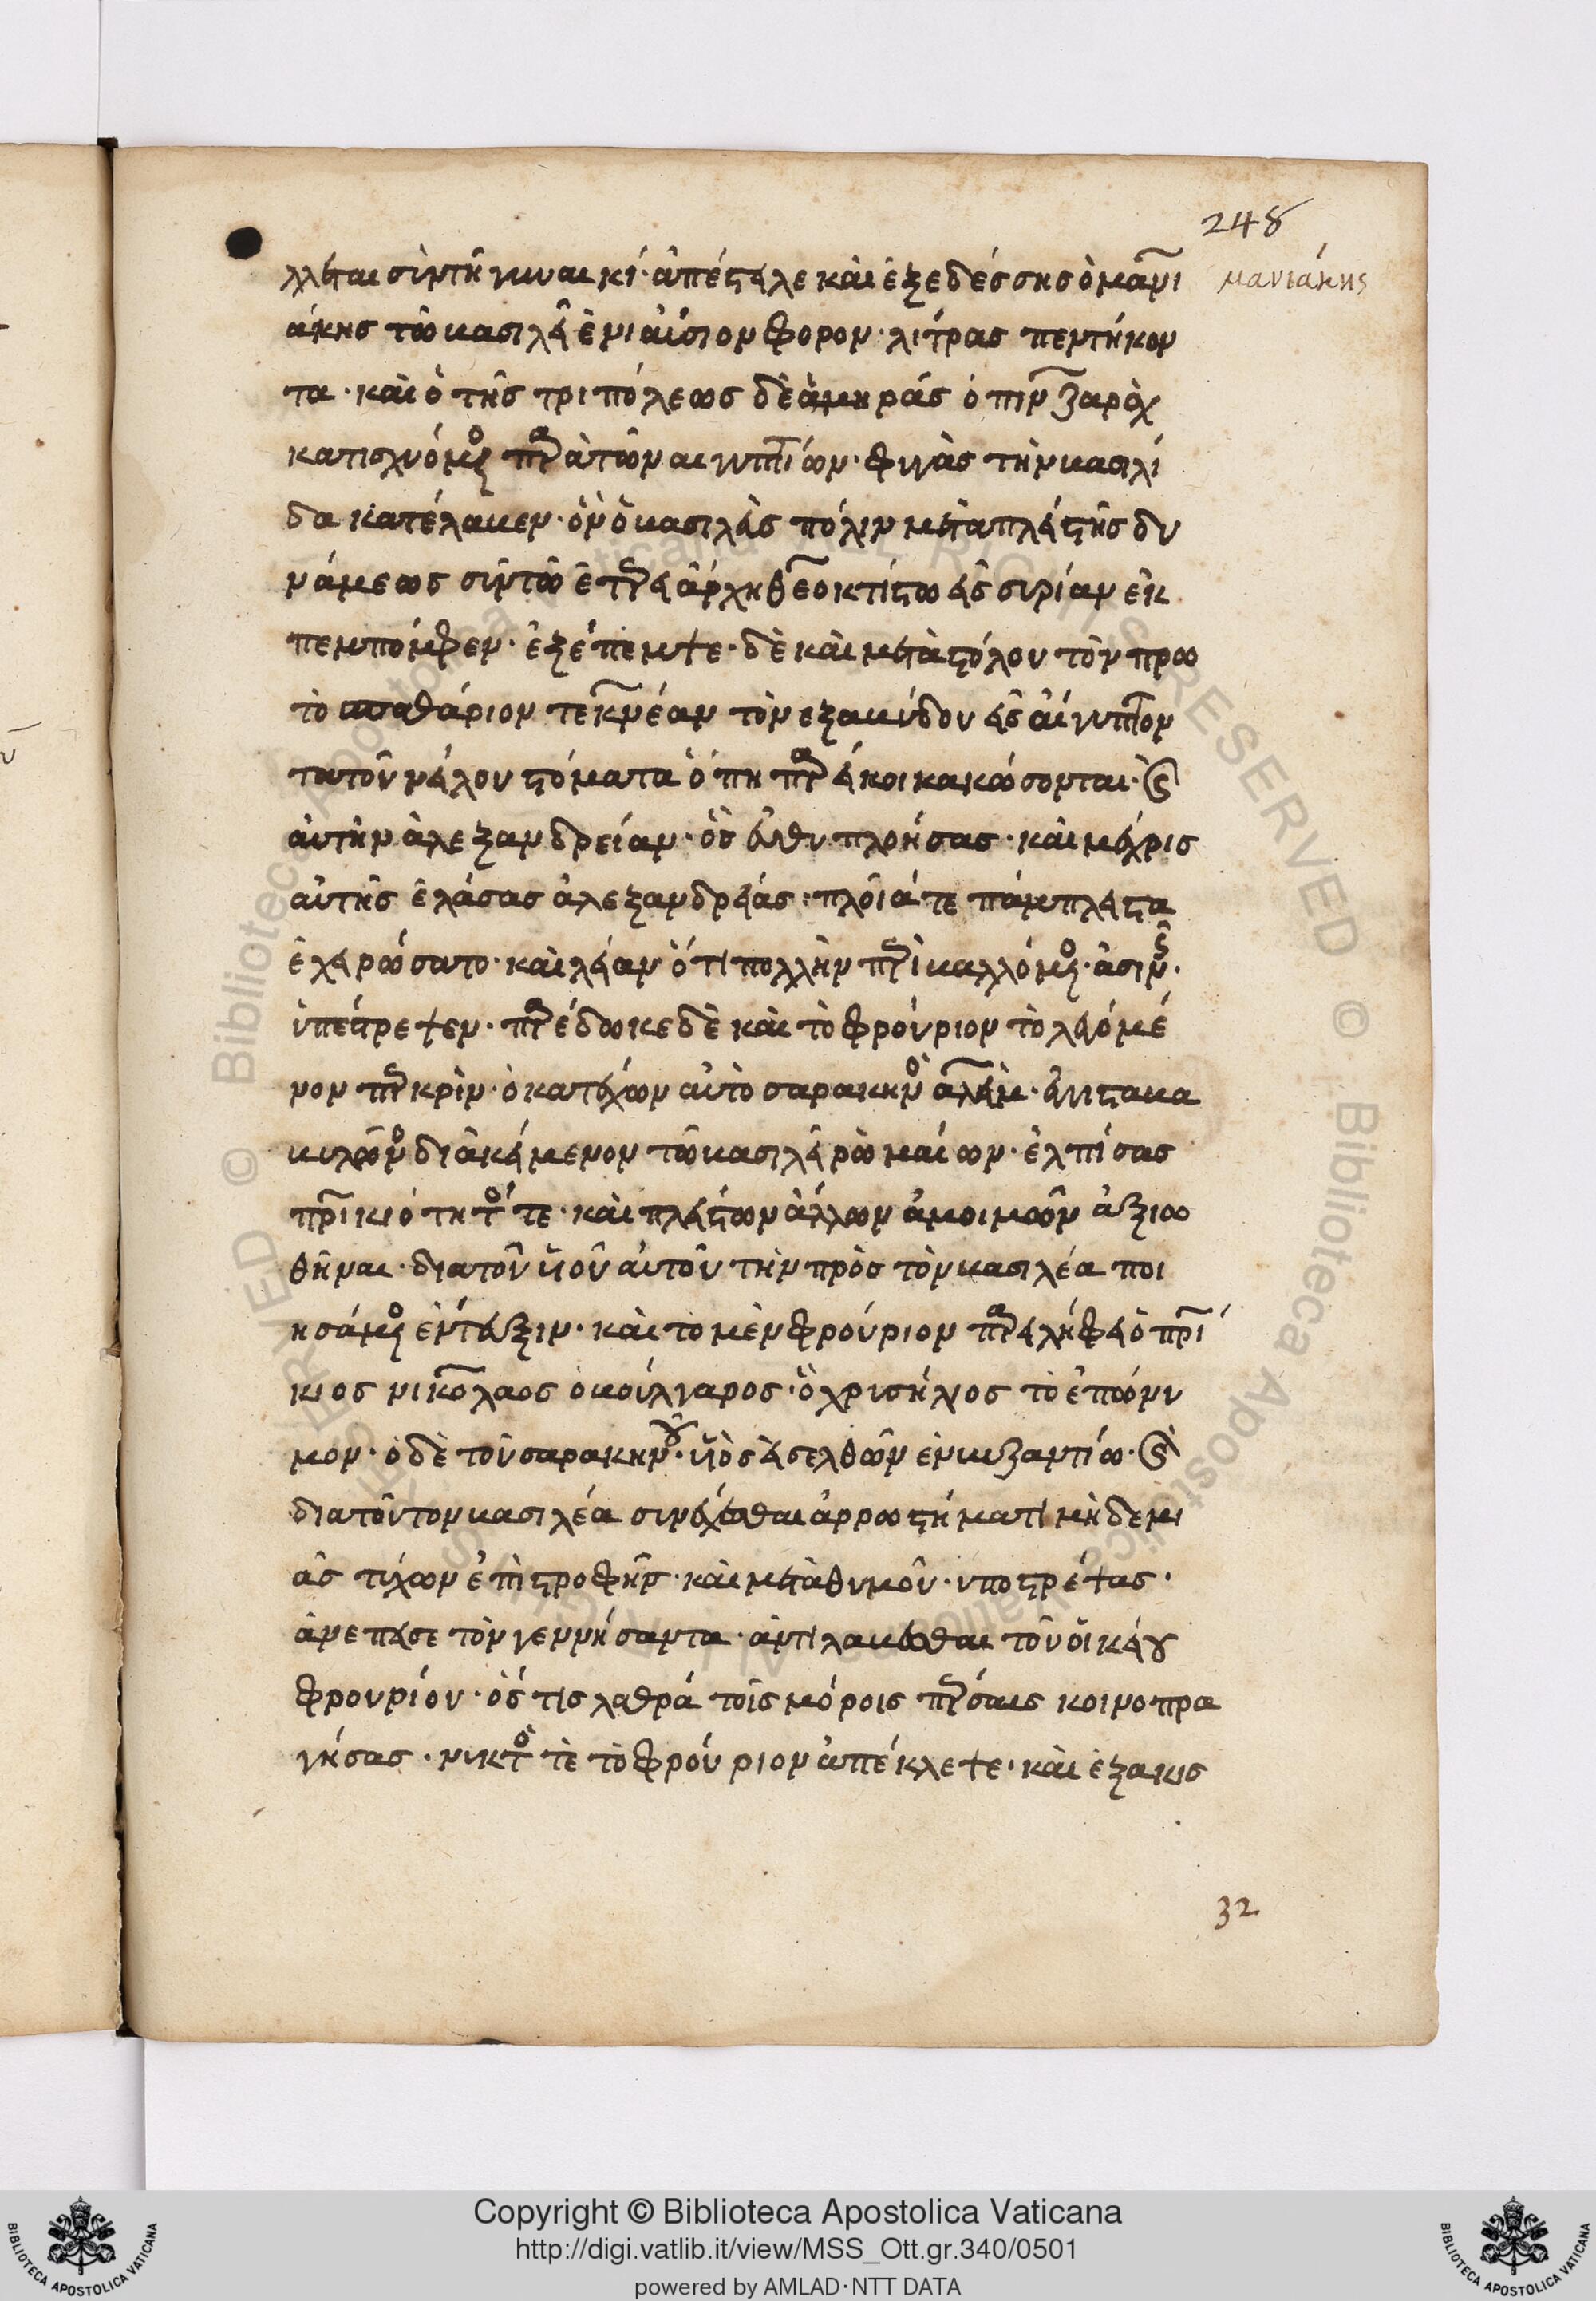 248
λλεται σὺν τῆ γυναικί· ἀπέστειλε καὶ ἐξ ἐδέσσης ὁ μανι μανιάκης
άκης τῶ βασιλεῖ ἐνιαύσιον φόρον· λίτρας πεντήκον
τα· καὶ ὁ τῆς τριπόλεως δὲ ἀμηρᾶς ὁ πινζαρὰχ
κατισχνόμενος παρὰ τῶν αἰγυπτίων· φυγὰς τὴν βασιλί
δα κατέλαβεν· ὃν ὁ βασιλεὺς πάλιν μετὰ πλείστης δυ
νάμεως σὺν τῶ ἑταιρειάρχη θεοκτίστω εἰς συρίαν ἐκ
πέμπομφεν· ἐξέπεμψε· δὲ καὶ μετὰ στόλου τὸν πρω
το σπαθάριον τεκνέαν τὸν ἐξ ἀβύδου εἰς αἴγυπτον
τὰ τοῦ νείλου στόματα ὅπη παρείκοι κακώσοντα· καὶ
αὐτὴν ἀλεξανδρείαν· ὃς εὐθυπλοήσας· καὶ μέχρις
αὐτῆς ἐλάσας ἀλεξανδρείας· πλοῖά τε πάμπλειστα
ἐχειρώσατο· καὶ λείαν ὅτι πολλὴν περιβαλλόμενος· ἀσινῶς·
ὑπέστρεψεν· παρέδωκε δὲ καὶ τὸ φρούριον τὸ λεγόμε
νον περκρὶν· ὁ κατέχων αὐτὸ σαρακηνὸς ἀλεὶμ· ἔγγιστα βα
βυλῶνος διακείμενον τῶ βασιλεῖ ῥωμαίων· ἐλπίσας
πατρικιότητός τε· καὶ πλείστων ἄλλων ἀμοιβῶν ἀξιω
θῆναι· διὰ τοῦ υἱοῦ αὐτοῦ τὴν πρὸς τὸν βασιλέα ποι
ησάμενος ἔντευξιν· καὶ τὸ μὲν φρούριον παρειλήφει ὁ πατρί
κιος νικόλαος ὁ βούλγαρος· ὁ χρυσήλιος τὸ ἐπώνυ
μον· ὁ δὲ τοῦ σαρακηνοῦ· υἱὸς εἰσελθὼν ἐν βυζαντίω· καὶ
διὰ τοῦ τὸν βασιλέα συνέχεσθαι ἀρρωστήματι μὴ δεμι
ᾶς τυχὼν ἐπιστροφῆς· καὶ μετὰ θυμοῦ· ὑποστρέψας·
ἀνέπεισε τὸν γεννήσαντα· ἀντιλαβέσθαι τοῦ οἰκείου
φρουρίου· ὅς τις λάθρα τοῖς μόροις πέρσαις κοινοπρα
γήσας· νυκτός τε τὸ φρούριον ἀπέκλεψε· καὶ ἑξακις
32
Copyright © Biblioteca Apostolica Vaticana
http://digi.vatlib.it/view/MSS_Ott.gr.340/0501
powered by AMLAD·NTT DATA